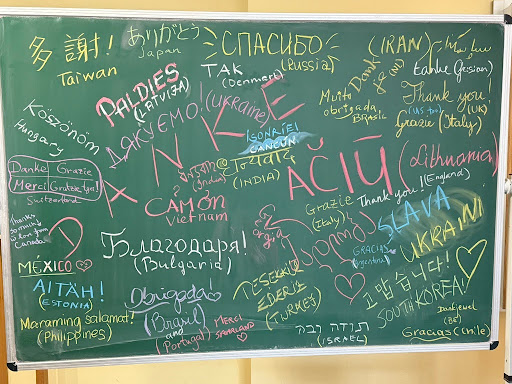 多謝!
Taiwan
ありがとう
Japan
СПАСИБО
(Russia)
(IRAN)
TAK
(Denmark)
PALDIES
(LATVIJA)
ДЯКУЄМО!
(UKRAINE)
Muito
obrigada
BRASIL
Dank
je
(NL)
Thank you!
(US too)
(UK)
Grazie (Italy)
Köszönöm
Hungary
Danke Grazie
Merci
Switzerland
¡SONRÍE!
CANCÚN
(India)
धन्यवाद
(INDIA)
AČIŪ
(Lithuania)
CÁMÓN
Vietnam
Thank you!
(England)
Grazie
(Italy)
Thanks
so much
& love from
Canada
SLAVA
UKRAINI
Georgia
GRACIAS
(Argentina)
Благодаря!
(Bulgaria)
MÉXICO
AITÄH!
(ESTONIA)
Obrigada
(Brasil)
and
(Portugal)
TEŞEKKÜR
EDERİZ
(TURKEY)
고맙습니다!
SOUTH KOREA!
Maraming salamat!
(Philippines)
MERCI
תודה רבה
(ISRAEL)
Dankjewel
(BE)
Gracias (Chile)